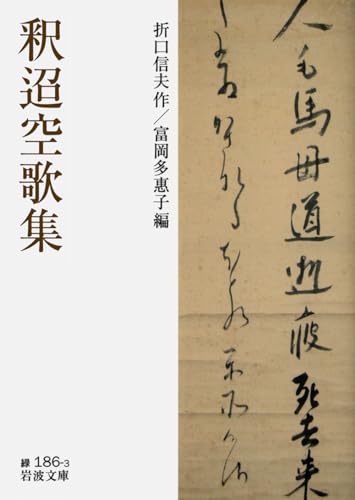 人毛馬毋道逝疲死去来
折口信夫作／富岡多惠子編
釈迢空歌集
緑 186-3
岩波文庫